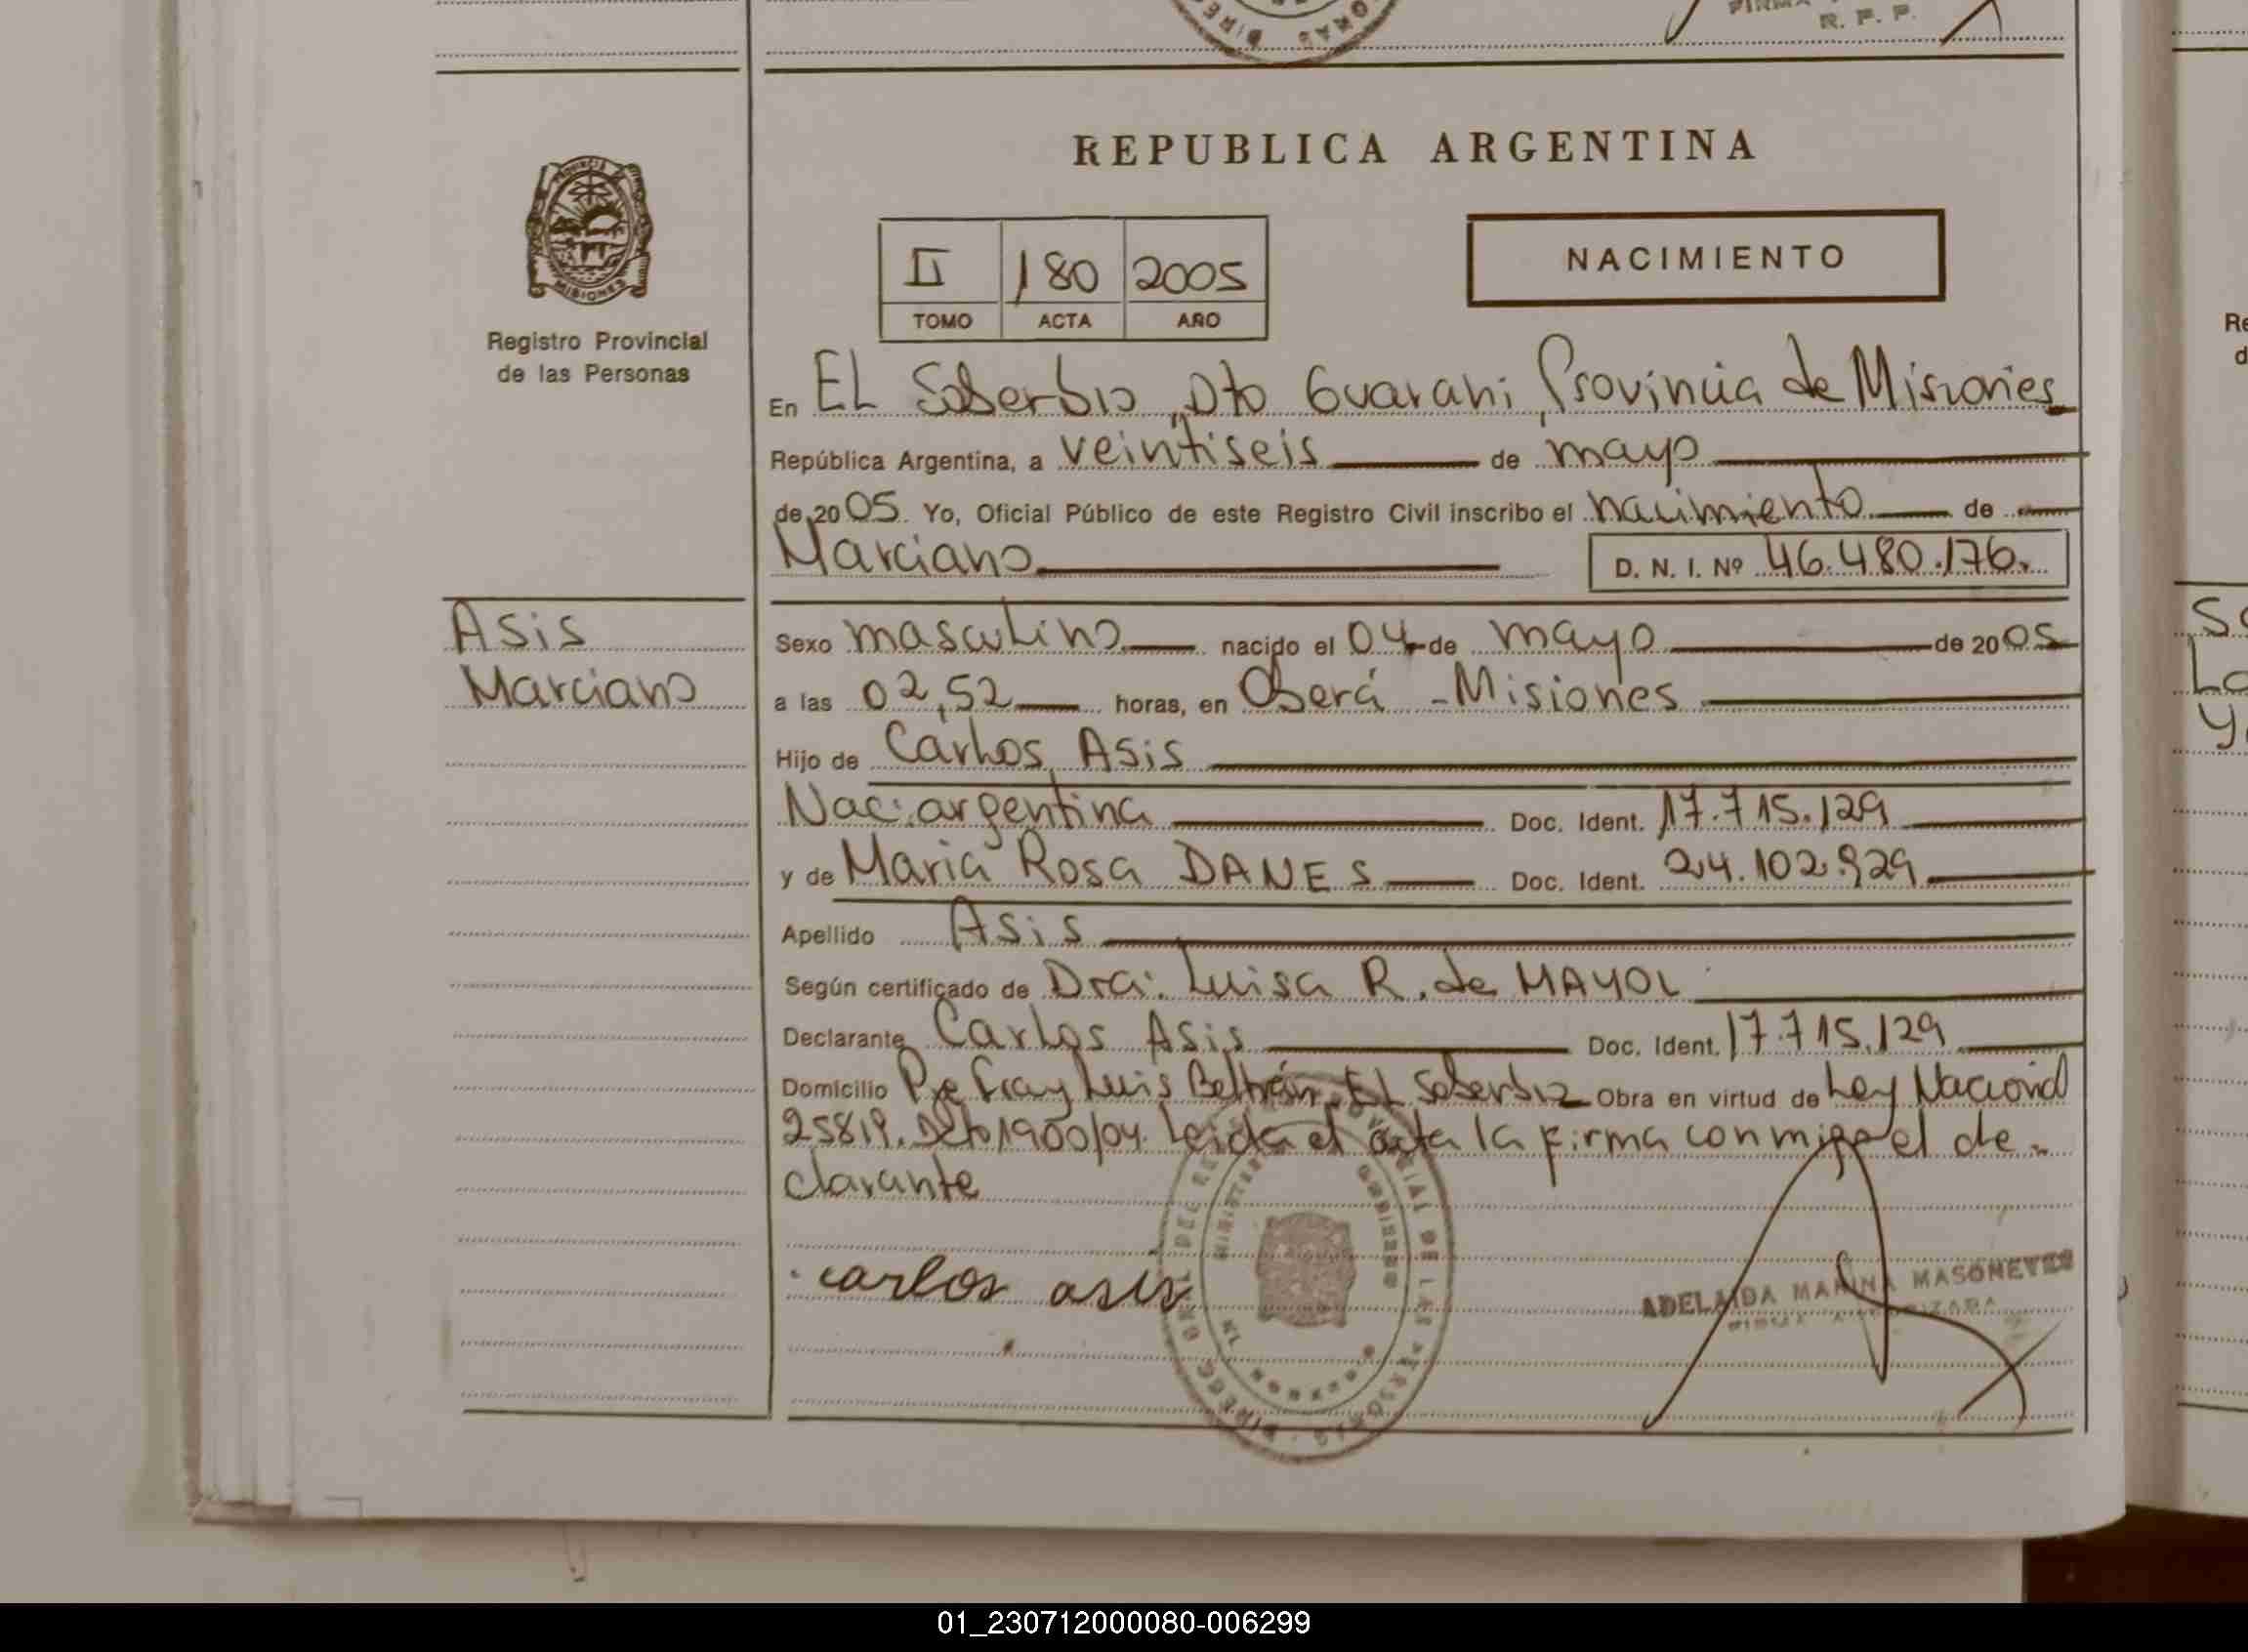 FIRMA
R. P. P.
REPUBLICA ARGENTINA
PROVINCIA DE
MISIONES
Registro Provincial
de las Personas
II 180 2005
TOMO ACTA AÑO
NACIMIENTO
En EL Soberbio, Dto Guarani, Provincia de Misiones
República Argentina, a veintiseis de mayo
de 2005. Yo, Oficial Público de este Registro Civil inscribo el nacimiento de
Marciano
D. N. I. Nº 46.480.176.
Asis
Marciano
Sexo masculino nacido el 04 de mayo de 2005
a las 02,52 horas, en Oberá - Misiones
Hijo de Carlos Asis
Nac: argentina Doc. Ident. 17.715.129
y de Maria Rosa DANES Doc. Ident. 24.102.929
Apellido Asis
Según certificado de Dra: Luisa R. de MAYOL
Declarante Carlos Asis Doc. Ident. 17.715.129
Domicilio Pje Fray Luis Beltrán. EL Soberbio Obra en virtud de Ley Nacional
25819. Dcto 1900/04. Leida el acta la firma conmigo el de-
clarante
carlos asis
ADELAIDA MARINA MASONEVES
FIRMA AUTORIZADA
01_230712000080-006299